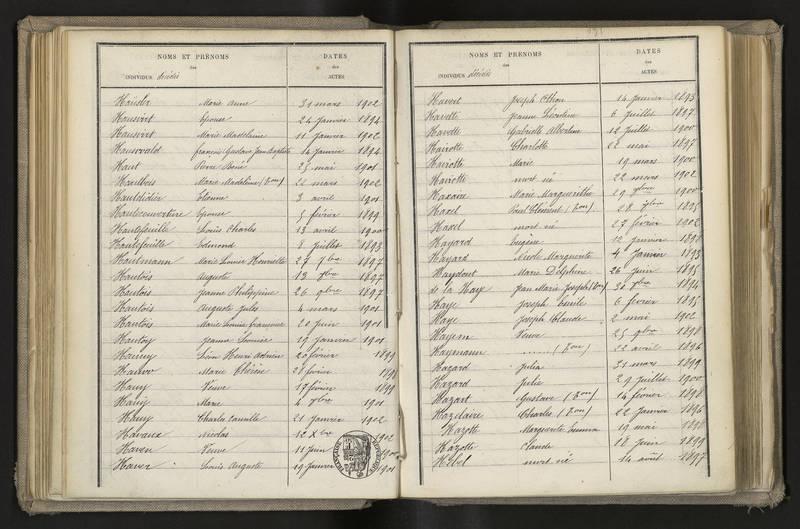 NOMS ET PRÉNOMS
des
INDIVIDUS décédés
DATES
des
ACTES
Marie Anne 31 mars 1902
Hausvirt Epouse 24 Janvier 1894
Hausvirt Marie Madeleine 11 Janvier 1902
François Gustave Jean Baptiste 14 Janvier 1894
Haut Pierre René 25 mai 1901
Hautbois Marie Madeleine 22 mars 1902
Hautdidier Etienne 3 avril 1901
Hautecouverture Epouse 5 février 1899
Hautefeuille Louis Charles 13 avril 1900
Hautefeuille Edmond 8 Juillet 1893
Hautmann Marie Louise Henriette 27 7bre 1897
Hautois Auguste 13 1897
Hautois Jeanne Philippine 26 9bre 1897
Hautois Auguste Jules 4 mars 1901
Hautois Marie Louise 20 Juin 1901
Hautoy Jeanne Louise 19 Janvier 1901
Léon Henri 20 février 1899
Marie Thérèse 28 février
Hauy Veuve 17 février 1899
Hauy Marie 4 1901
Hauy Charles Camille 21 Janvier 1902
Havaux Nicolas 12 Xbre 1902
Haven Veuve 11 Juin
Haver Louis Auguste 19 Janvier 1901
NOMS ET PRÉNOMS
des
INDIVIDUS décédés
DATES
des
ACTES
Joseph 14 Janvier 1893
Havette Jeanne 6 Juillet 1897
Havette Gabrielle Albertine 12 Juillet 1900
Haviotte Charlotte 22 mai 1897
Haviotte Marie 19 mars 1900
Haviotte mort né 22 mars 1902
Haxaire Marie Marguerite 29 1900
Haxel Paul Clément 28 1895
Haxel mort né 27 février 1902
Hayard Eugène 12 Janvier 1898
Hayard Nicole Marguerite 4 Janvier 1893
Haydont Marie Delphine 26 Juin 1895
de la Haye Jean Marie Joseph 30 1894
Haye Joseph Emile 6 février 1895
Haye Joseph Claude 2 mai 1902
Hayem Veuve 25 9bre 1898
Haymann 22 avril 1896
Hazard Julia 31 mars 1899
Hazard Julie 29 Juillet 1900
Hazart Gustave 14 février 1898
Hazelaire Charles 22 Janvier 1896
Hazotte Marguerite Emma 19 mai 1898
Hazotte Claude 18 Juin 1899
mort né 14 août 1897